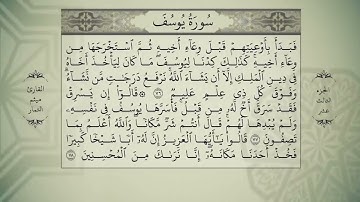 سُورَةُ يُوسُفَ
فَبَدَأَ بِأَوْعِيَتِهِمْ قَبْلَ وِعَآءِ أَخِيهِ ثُمَّ ٱسْتَخْرَجَهَا مِن
وِعَآءِ أَخِيهِ كَذَٰلِكَ كِدْنَا لِيُوسُفَ مَا كَانَ لِيَأْخُذَ أَخَاهُ
فِى دِينِ ٱلْمَلِكِ إِلَّآ أَن يَشَآءَ ٱللَّهُ نَرْفَعُ دَرَجَٰتٍ مَّن نَّشَآءُ
وَفَوْقَ كُلِّ ذِى عِلْمٍ عَلِيمٌ ٧٦ قَالُوٓا۟ إِن يَسْرِقْ
فَقَدْ سَرَقَ أَخٌ لَّهُۥ مِن قَبْلُ فَأَسَرَّهَا يُوسُفُ فِى نَفْسِهِۦ
وَلَمْ يُبْدِهَا لَهُمْ قَالَ أَنتُمْ شَرٌّ مَّكَانًا وَٱللَّهُ أَعْلَمُ بِمَا
تَصِفُونَ ٧٧ قَالُوا۟ يَٰٓأَيُّهَا ٱلْعَزِيزُ إِنَّ لَهُۥٓ أَبًا شَيْخًا كَبِيرًا
فَخُذْ أَحَدَنَا مَكَانَهُۥٓ إِنَّا نَرَىٰكَ مِنَ ٱلْمُحْسِنِينَ ٧٨
الجزء
الثالث
عشر
القارئ
ميثم
التمار